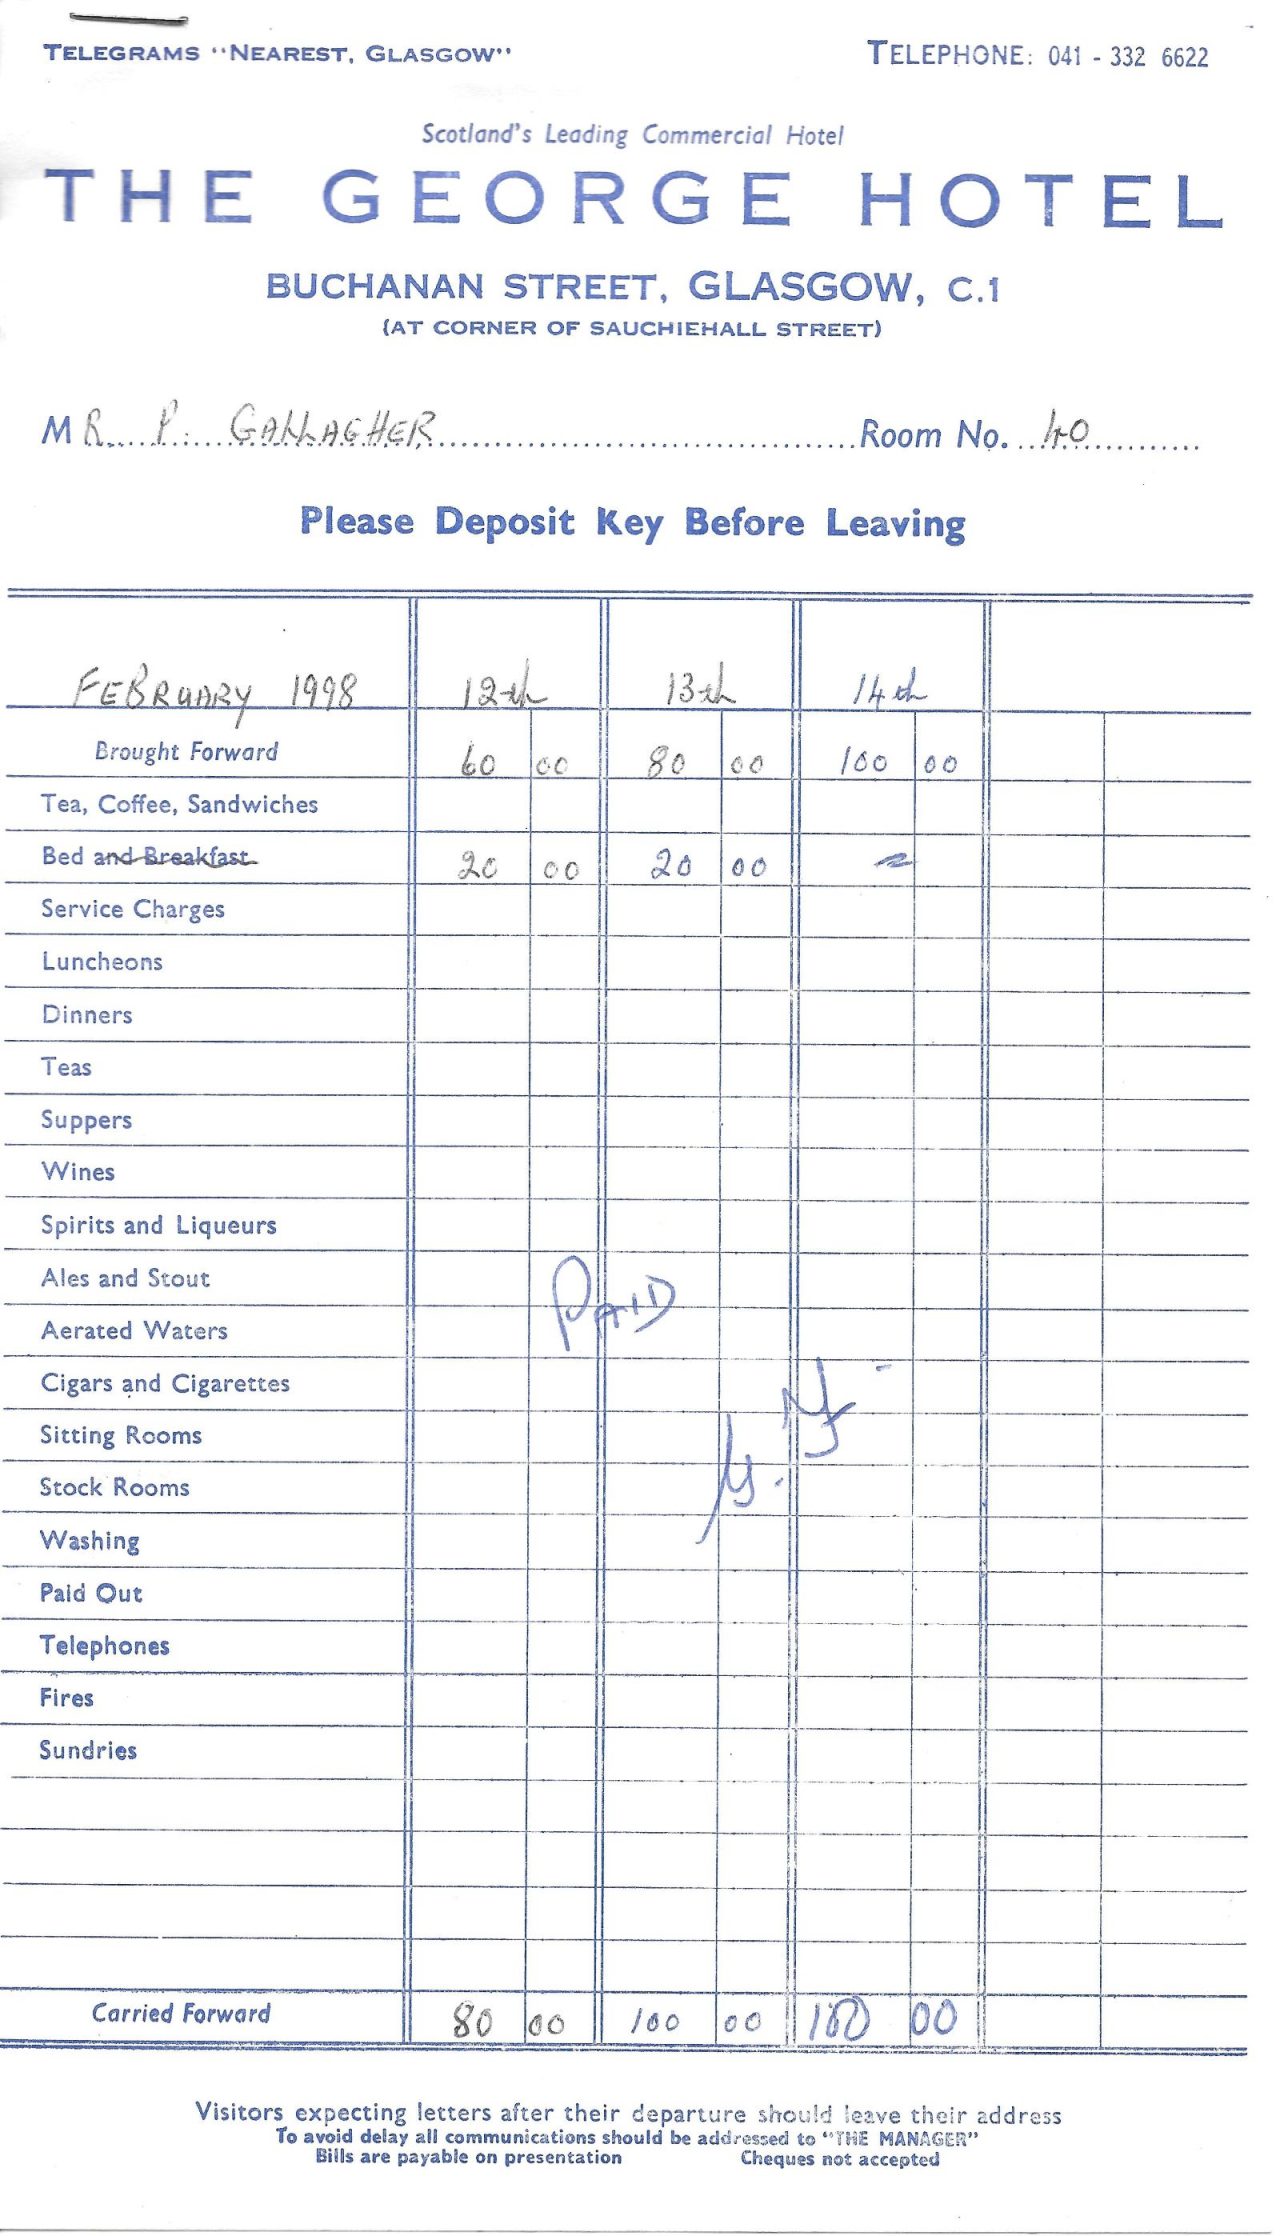 TELEGRAMS "NEAREST, GLASGOW"
TELEPHONE: 041 - 332 6622
Scotland's Leading Commercial Hotel
THE GEORGE HOTEL
BUCHANAN STREET, GLASGOW, C.1
(AT CORNER OF SAUCHIEHALL STREET)
MR. P. GALLAGHER Room No. 40
Please Deposit Key Before Leaving
FEBRUARY 1998 12th 13th 14th
Brought Forward 60 00 80 00 100 00
Tea, Coffee, Sandwiches
Bed and Breakfast 20 00 20 00
Service Charges
Luncheons
Dinners
Teas
Suppers
Wines
Spirits and Liqueurs
Ales and Stout
PAID
Aerated Waters
Cigars and Cigarettes
Sitting Rooms
Stock Rooms
Washing
Paid Out
Telephones
Fires
Sundries
Carried Forward 80 00 100 00 100 00
Visitors expecting letters after their departure should leave their address
To avoid delay all communications should be addressed to "THE MANAGER"
Bills are payable on presentation Cheques not accepted